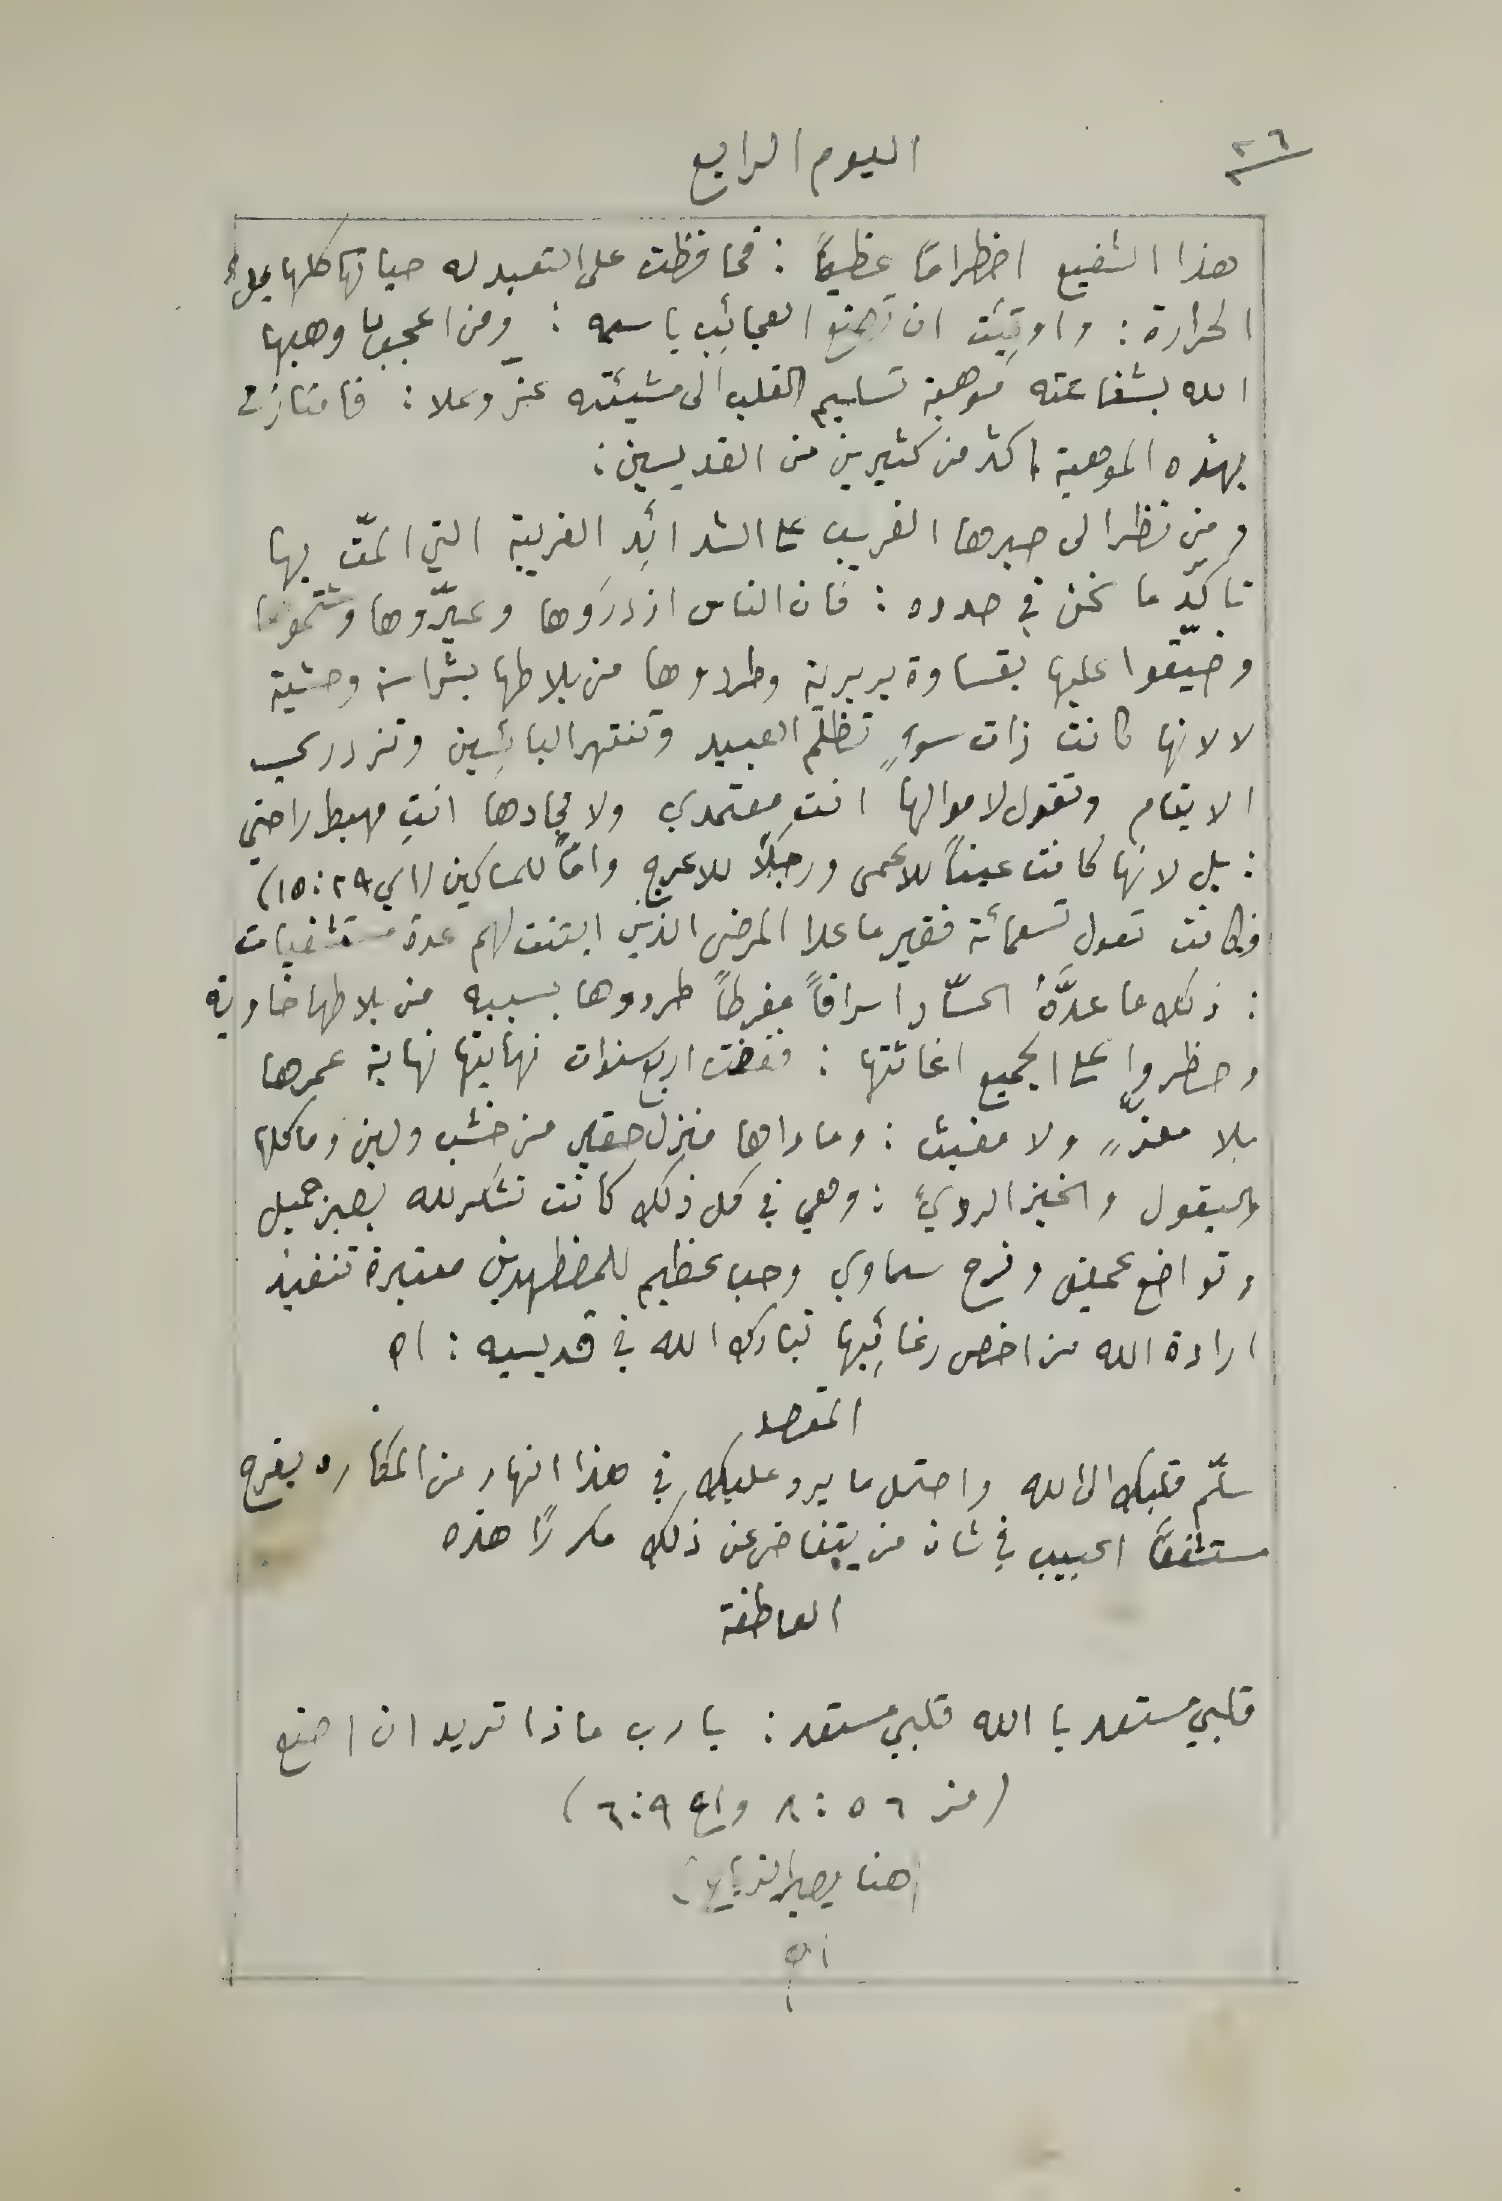 ٢٦
اليوم الرابع
هذا الشفيع اضطراماً عظيماً : فحافظت على التعبد له حياتها كلها بملء
الحرارة : واوتيَت ان تصنع العجائب باسمه : ومن اعجبها وهبها
الله بشفاعته موهبة تسليم القلب الى مشيئته عزّ وعلا : فامتازت
بهذه الموهبة اكثر من كثيرين من القديسين :
ومن نظر الى صبرها الغريب على الشدائد الغريبة التي المّت بها
تأكّد ما نحن في صدده : فان الناس ازدرَوها وعيّروها وشتموها
وضيّقوا عليها بقساوة بربرية وطردوها من بلاطها بشراسة وحشية
لا لانها كانت ذات سوءٍ تظلم العبيد وتنتهر البائسين وتزدري
الايتام وتقول لاموالها انتِ معتمدي ولامجادها انتِ مهبط راحتي
: بل لانها كانت عيناً للاعمى ورجلاً للاعرج واماً للمساكين (اي ٢٩ : ١٥)
فكانت تعول تسعمائة فقير ما عدا المرضى الذين ابتنت لهم عدة مستشفيات
: ذلك ما عدَّهُ الحسّاد اسرافاً مفرطاً طردوها بسببه من بلاطها خاوية
وحظروا على الجميع اغاثتها : فقضت اربع سنوات نهايتها نهاية عمرها
بلا معزٍّ ولا مغيث : وماواها منزل حقير من خشب ولبن وماكلها
البقول والخبز الردي : وهي في كل ذلك كانت تشكر لله بصبر جميل
وتواضع عميق وفرح سماوي وحب عظيم للمضطهدين معتبرة تنفيذ
ارادة الله من اخص رغائبها تبارك الله في قديسيه : اه
المقصد
سلّم قلبك الى الله واحتمل ما يرد عليك في هذا النهار من المكاره بفرح
مستشفعاً الحبيب في شان من يتغاضى عن ذلك مكرراً هذه
العاطفة
قلبي مستعد يا الله قلبي مستعد : يا رب ماذا تريد ان اصنع
(مز ٥٦ : ٨ واع ٩ : ٦)
(هنا يصير الزياح)